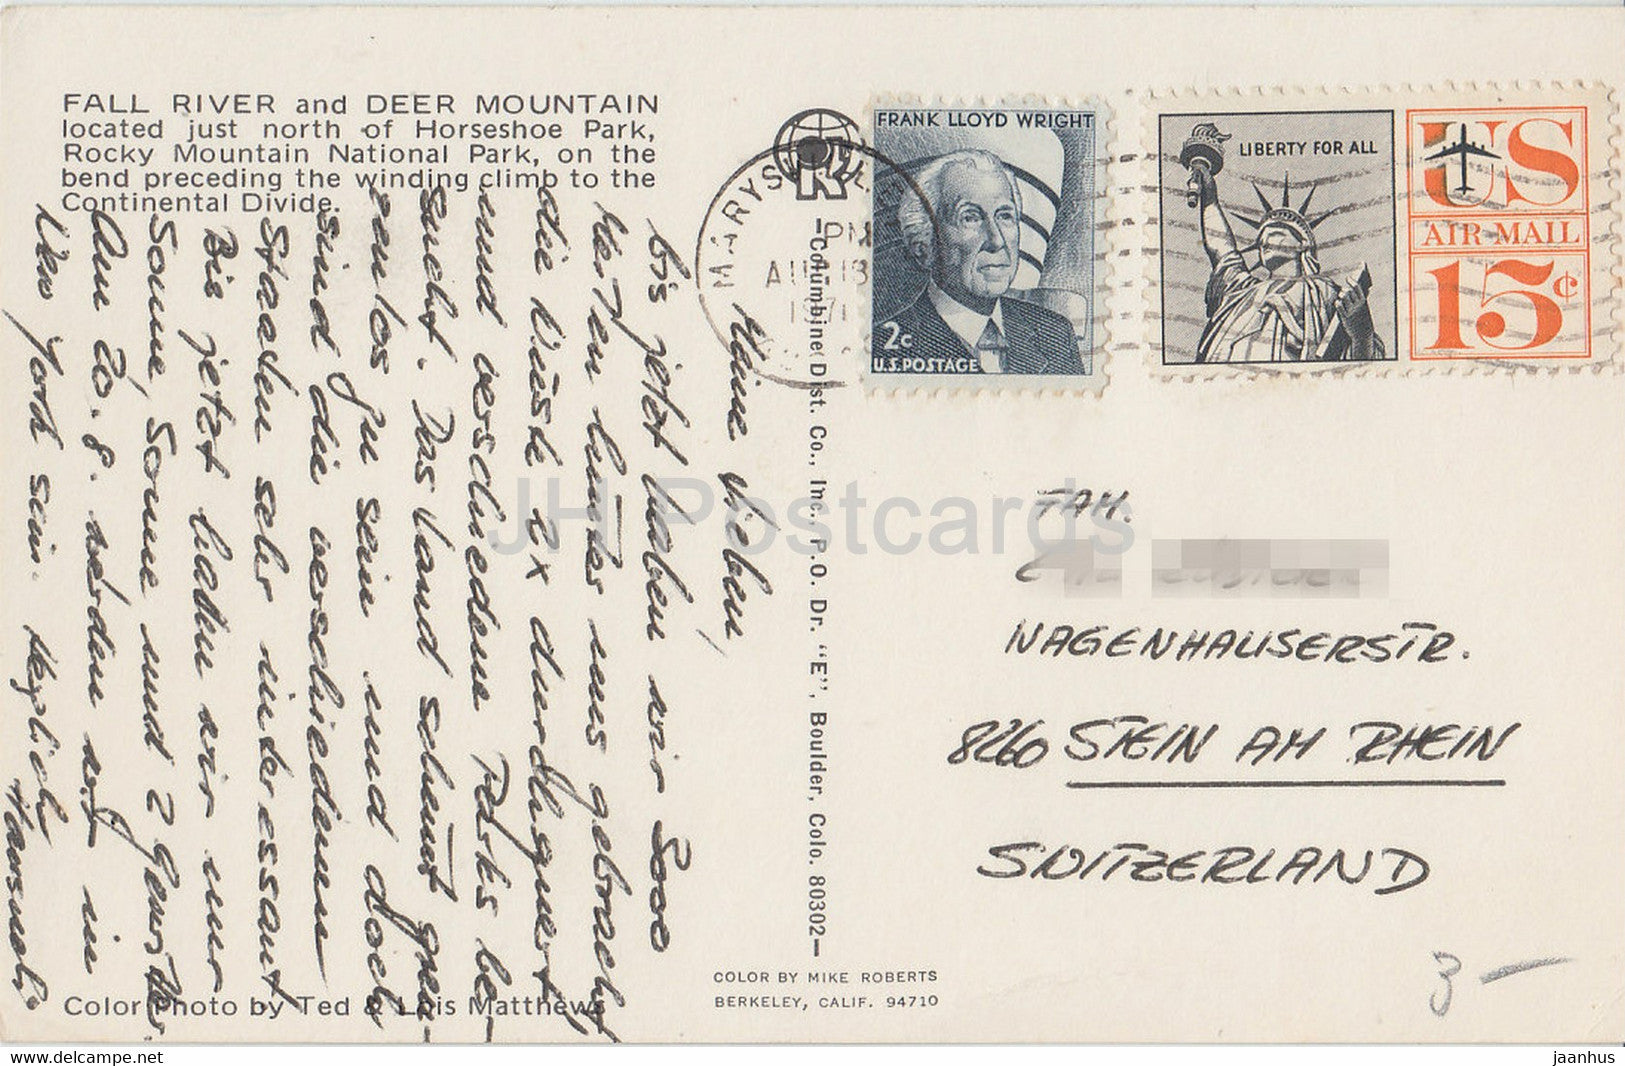 FALL RIVER and DEER MOUNTAIN
located just north of Horseshoe Park,
Rocky Mountain National Park, on the
bend preceding the winding climb to the
Continental Divide.
Meine Lieben,
bis jetzt haben wir 3000
Meilen hinter uns gebracht
die Wüste 2x durchquert
und verschiedene Parks be-
sucht. Das Land scheint gren-
zenlos zu sein und doch
sind die verschiedenen
Staaten sehr interessant
Bis jetzt hatten wir nur
Sonne, Sonne und 2 Gewitter.
Am 20. 8. werden wir in
New York sein. Herzlich
Hansueli.
Color Photo by Ted & Lois Matthews
Columbine Dist. Co., Inc. P.O. Dr. "E", Boulder, Colo. 80302
COLOR BY MIKE ROBERTS
BERKELEY, CALIF. 94710
PM
1971
FRANK LLOYD WRIGHT
2c
U.S. POSTAGE
LIBERTY FOR ALL
US
AIR MAIL
15¢
FAM.
WAGENHAUSERSTR.
8260 STEIN AM RHEIN
SWITZERLAND
3 –
JH Postcards
oldthing.net
jaanhus